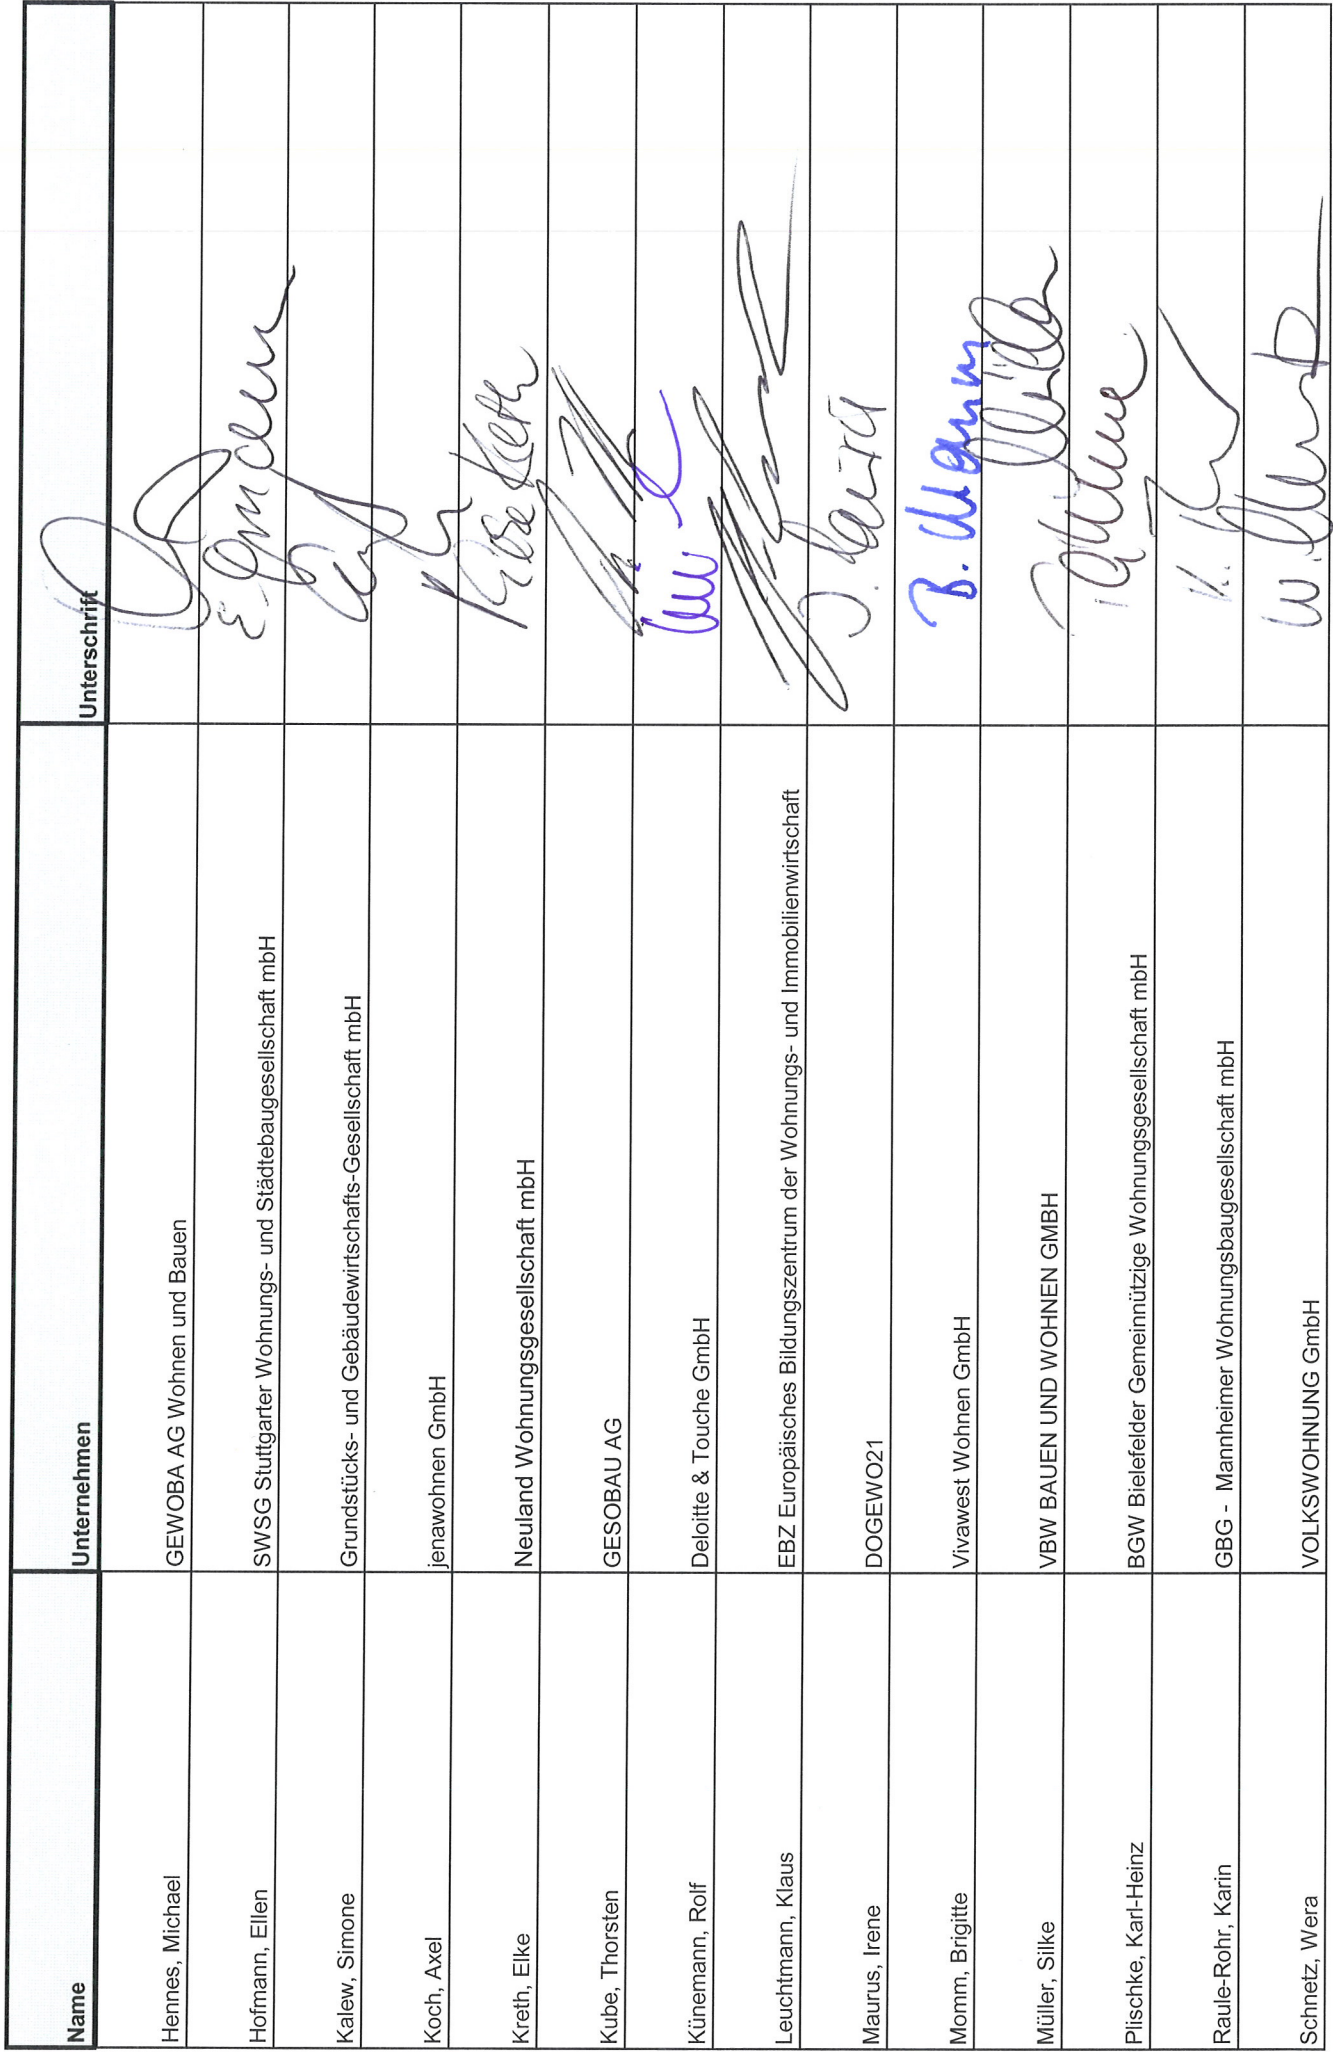 Name Unternehmen Unterschrift
Hennes, Michael GEWOBA AG Wohnen und Bauen
Hofmann, Ellen SWSG Stuttgarter Wohnungs- und Städtebaugesellschaft mbH
Kalew, Simone Grundstücks- und Gebäudewirtschafts-Gesellschaft mbH
Koch, Axel jenawohnen GmbH
Kreth, Elke Neuland Wohnungsgesellschaft mbH
Kube, Thorsten GESOBAU AG
Künemann, Rolf Deloitte & Touche GmbH
Leuchtmann, Klaus EBZ Europäisches Bildungszentrum der Wohnungs- und Immobilienwirtschaft
Maurus, Irene DOGEWO21
Momm, Brigitte Vivawest Wohnen GmbH B.
Müller, Silke VBW BAUEN UND WOHNEN GMBH
Plischke, Karl-Heinz BGW Bielefelder Gemeinnützige Wohnungsgesellschaft mbH
Raule-Rohr, Karin GBG - Mannheimer Wohnungsbaugesellschaft mbH
Schnetz, Wera VOLKSWOHNUNG GmbH